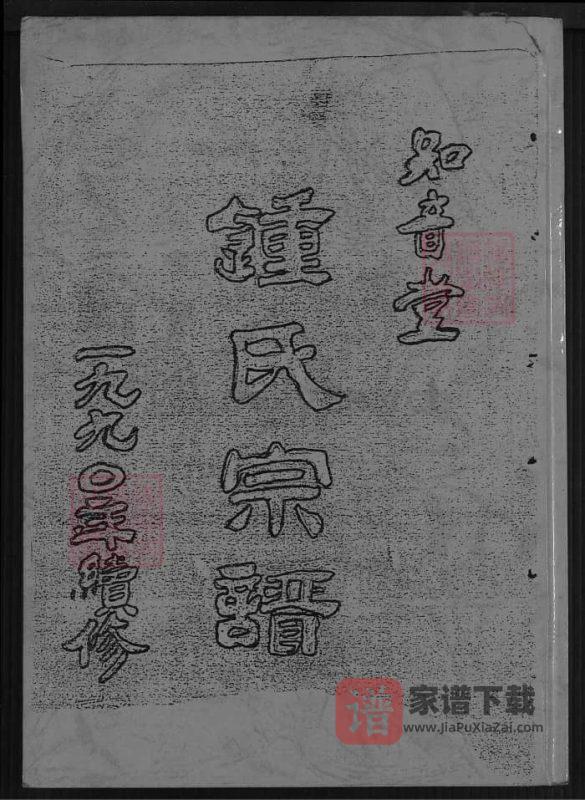 知音堂
鍾氏宗譜
一九九〇年續修
谱
家谱下载
www.JiaPuXiaZai.com